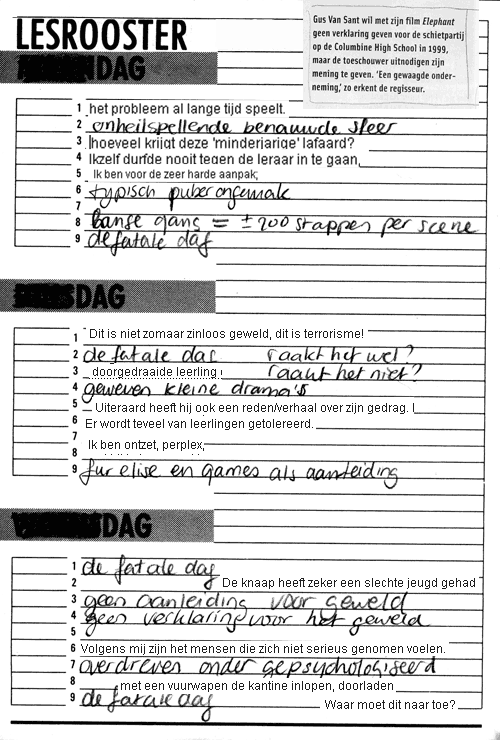 LESROOSTER
Gus Van Sant wil met zijn film Elephant
geen verklaring geven voor de schietpartij
op de Columbine High School in 1999,
maar de toeschouwer uitnodigen zijn
mening te geven. 'Een gewaagde onder-
neming,' zo erkent de regisseur.
DAG
1 het probleem al lange tijd speelt.
2 onheilspellende benauwde sfeer
3 hoeveel krijgt deze 'minderjarige' lafaard?
4 Ikzelf durfde nooit tegen de leraar in te gaan,
5 Ik ben voor de zeer harde aanpak,
6 typisch puberongemak
7
8 lange gang = ± 200 stappen per scene
9 de fatale dag
DAG
1 Dit is niet zomaar zinloos geweld, dit is terrorisme!
2 de fatale dag raakt het wel?
3 doorgedraaide leerling raakt het niet?
4 geweven kleine drama's
5 Uiteraard heeft hij ook een reden/verhaal over zijn gedrag.
6 Er wordt teveel van leerlingen getolereerd.
7 Ik ben ontzet, perplex,
8
9 fur elise en games als aanleiding
DAG
1 de fatale dag
2 De knaap heeft zeker een slechte jeugd gehad
3 geen aanleiding voor geweld
4 geen verklaring voor het geweld
5
6 Volgens mij zijn het mensen die zich niet serieus genomen voelen.
7 overdreven onder gepsychologiseerd
8 met een vuurwapen de kantine inlopen, doorladen
9 de fatale dag Waar moet dit naar toe?